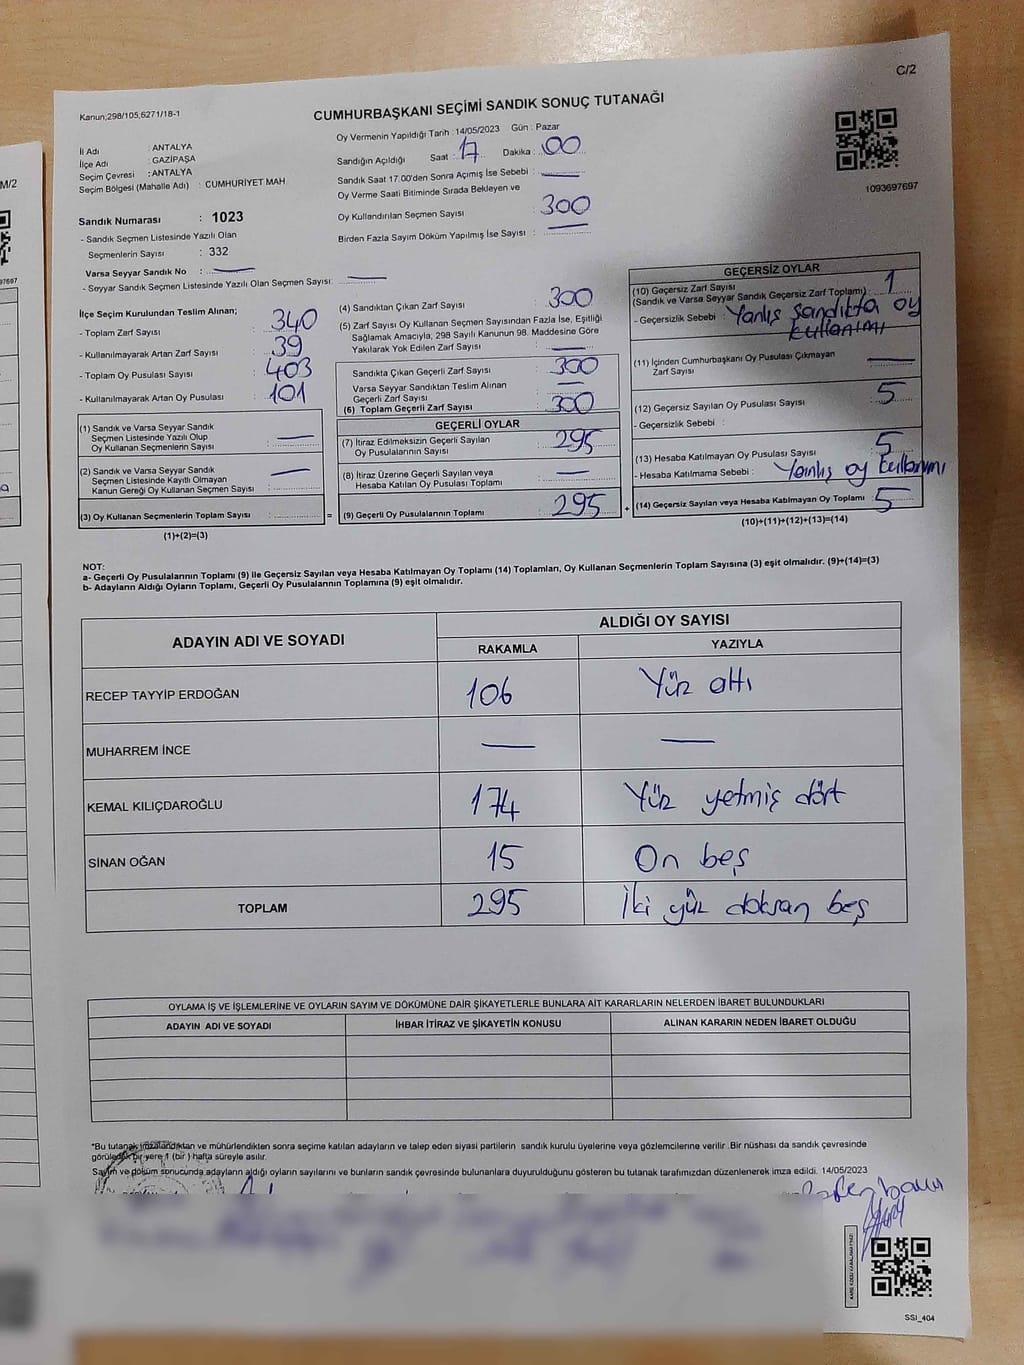 C/2
Kanun;298/105,6271/18-1
CUMHURBAŞKANI SEÇİMİ SANDIK SONUÇ TUTANAĞI
Oy Vermenin Yapıldığı Tarih : 14/05/2023 Gün : Pazar
İl Adı : ANTALYA
İlçe Adı : GAZİPAŞA
Seçim Çevresi : ANTALYA
Seçim Bölgesi (Mahalle Adı) : CUMHURİYET MAH
Sandığın Açıldığı Saat : 17 Dakika : 00
Sandık Saat 17.00'den Sonra Açımış İse Sebebi : —
Oy Verme Saati Bitiminde Sırada Bekleyen ve
Oy Kullandırılan Seçmen Sayısı : 300
Birden Fazla Sayım Döküm Yapılmış İse Sayısı : —
1093697697
Sandık Numarası : 1023
- Sandık Seçmen Listesinde Yazılı Olan
Seçmenlerin Sayısı : 332
Varsa Seyyar Sandık No : —
- Seyyar Sandık Seçmen Listesinde Yazılı Olan Seçmen Sayısı: —
İlçe Seçim Kurulundan Teslim Alınan;
- Toplam Zarf Sayısı : 340
- Kullanılmayarak Artan Zarf Sayısı : 39
- Toplam Oy Pusulası Sayısı : 403
- Kullanılmayarak Artan Oy Pusulası : 101
(1) Sandık ve Varsa Seyyar Sandık
Seçmen Listesinde Yazılı Olup
Oy Kullanan Seçmenlerin Sayısı : —
(2) Sandık ve Varsa Seyyar Sandık
Seçmen Listesinde Kayıtlı Olmayan
Kanun Gereği Oy Kullanan Seçmen Sayısı : —
(3) Oy Kullanan Seçmenlerin Toplam Sayısı :
=
(1)+(2)=(3)
(4) Sandıktan Çıkan Zarf Sayısı : 300
(5) Zarf Sayısı Oy Kullanan Seçmen Sayısından Fazla İse, Eşitliği
Sağlamak Amacıyla, 298 Sayılı Kanunun 98. Maddesine Göre
Yakılarak Yok Edilen Zarf Sayısı : —
Sandıkta Çıkan Geçerli Zarf Sayısı : 300
Varsa Seyyar Sandıktan Teslim Alınan
Geçerli Zarf Sayısı : —
(6) Toplam Geçerli Zarf Sayısı : 300
GEÇERLİ OYLAR
(7) İtiraz Edilmeksizin Geçerli Sayılan
Oy Pusulasının Sayısı : 295
(8) İtiraz Üzerine Geçerli Sayılan veya
Hesaba Katılan Oy Pusulası Toplamı : —
(9) Geçerli Oy Pusulalarının Toplamı : 295
+
GEÇERSİZ OYLAR
(10) Geçersiz Zarf Sayısı
(Sandık ve Varsa Seyyar Sandık Geçersiz Zarf Toplamı) : 1
- Geçersizlik Sebebi : Yanlış sandıkta oy
kullanımı
(11) İçinden Cumhurbaşkanı Oy Pusulası Çıkmayan
Zarf Sayısı : —
(12) Geçersiz Sayılan Oy Pusulası Sayısı : 5
- Geçersizlik Sebebi :
(13) Hesaba Katılmayan Oy Pusulası Sayısı : 5
- Hesaba Katılmama Sebebi : Yanlış oy kullanımı
(14) Geçersiz Sayılan veya Hesaba Katılmayan Oy Toplamı : 5
(10)+(11)+(12)+(13)=(14)
NOT:
a- Geçerli Oy Pusulalarının Toplamı (9) ile Geçersiz Sayılan veya Hesaba Katılmayan Oy Toplamı (14) Toplamları, Oy Kullanan Seçmenlerin Toplam Sayısına (3) eşit olmalıdır. (9)+(14)=(3)
b- Adayların Aldığı Oyların Toplamı, Geçerli Oy Pusulalarının Toplamına (9) eşit olmalıdır.
ADAYIN ADI VE SOYADI
ALDIĞI OY SAYISI
RAKAMLA YAZIYLA
RECEP TAYYİP ERDOĞAN 106 Yüz altı
MUHARREM İNCE — —
KEMAL KILIÇDAROĞLU 174 Yüz yetmiş dört
SİNAN OĞAN 15 On beş
TOPLAM 295 İki yüz doksan beş
OYLAMA İŞ VE İŞLEMLERİNE VE OYLARIN SAYIM VE DÖKÜMÜNE DAİR ŞİKAYETLERLE BUNLARA AİT KARARLARIN NELERDEN İBARET BULUNDUKLARI
ADAYIN ADI VE SOYADI İHBAR İTİRAZ VE ŞİKAYETİN KONUSU ALINAN KARARIN NEDEN İBARET OLDUĞU
*Bu tutanak imzalandıktan ve mühürlendikten sonra seçime katılan adayların ve talep eden siyasi partilerin sandık kurulu üyelerine veya gözlemcilerine verilir .Bir nüshası da sandık çevresinde
görülecek bir yere 1 (bir ) hafta süreyle asılır.
Sayım ve döküm sonucunda adayların aldığı oyların sayılarını ve bunların sandık çevresinde bulunanlara duyurulduğunu gösteren bu tutanak tarafımızdan düzenlenerek imza edildi. 14/05/2023
SSI_404
M/2